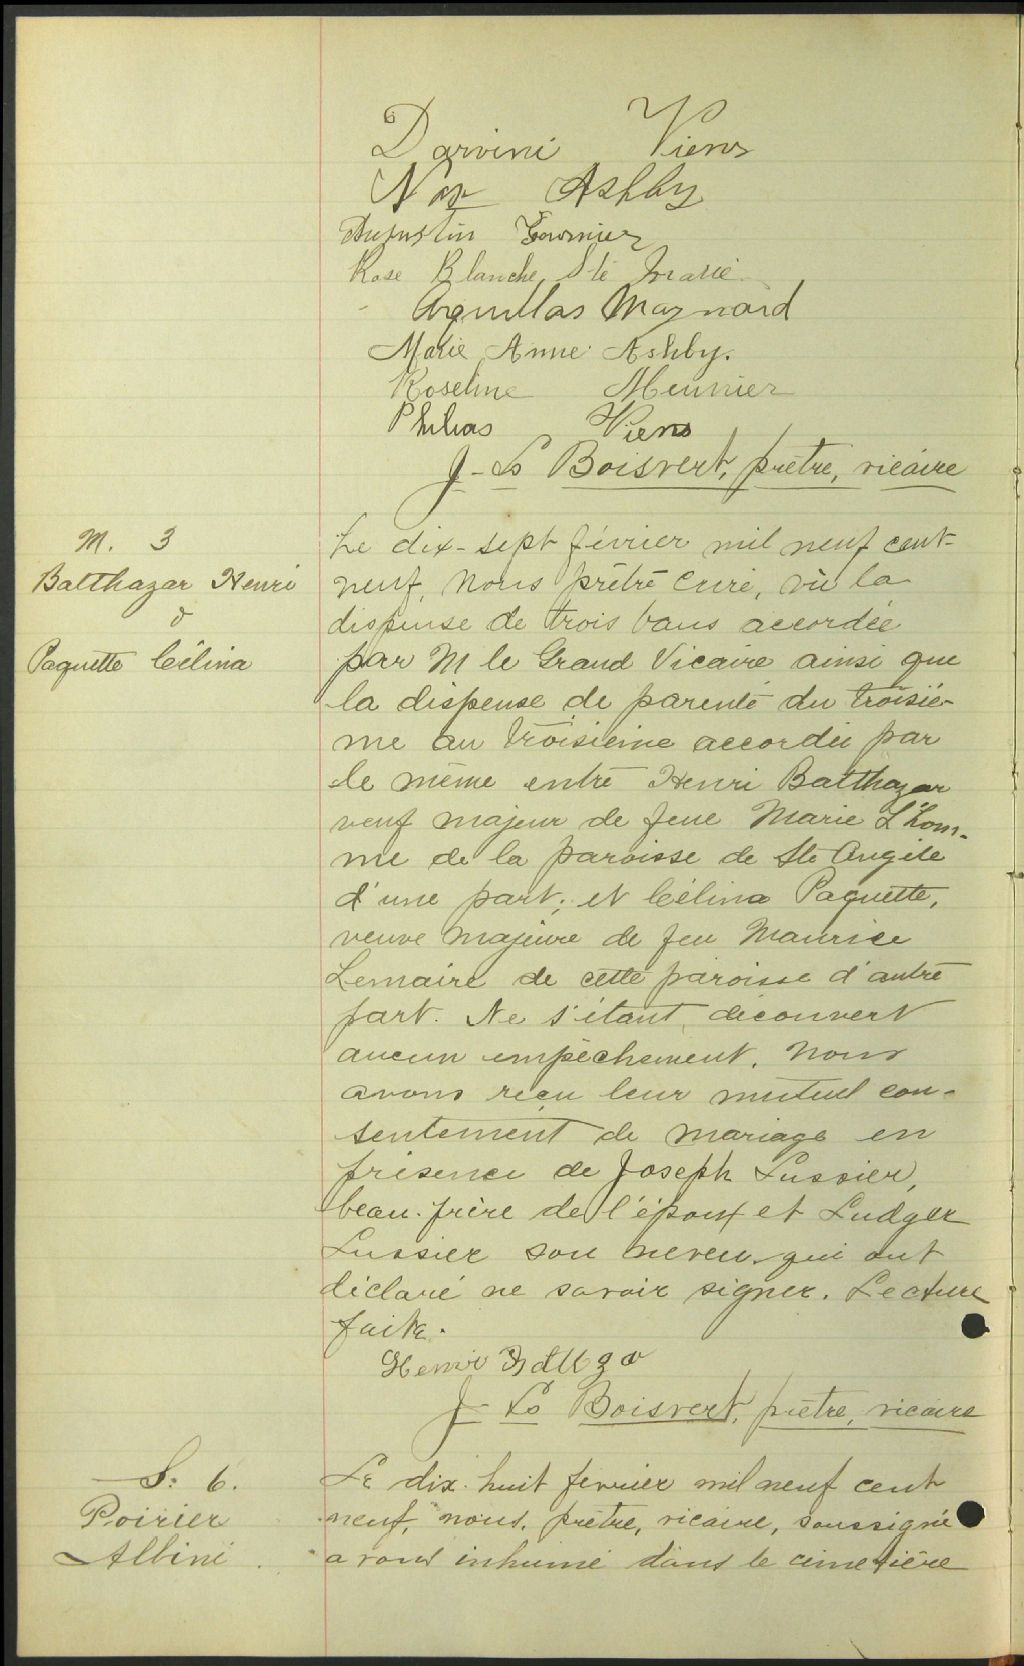 Darvini Viens
Nap Ashby
Augustin Fournier
Rose Blanche Ste Marie
Aquillas Maynard
Marie Anne Ashby.
Roseline Meunier
Philias Viens
J-Ls Boisvert, prêtre, vicaire
M. 3
Balthazar Henri
&
Paquette Célina
Le dix-sept février mil neuf cent-
neuf, nous prêtre curé, vu la
dispense de trois bans accordée
par M le Grand Vicaire ainsi que
la dispense de parenté du troisiè-
me au troisième accordée par
le même entre Henri Balthazar
veuf majeur de feue Marie L'hom-
me de la paroisse de Ste Angèle
d'une part; et Célina Paquette,
veuve majeure de feu Maurice
Lemaire de cette paroisse d'autre
part. Ne s'étant découvert
aucun empêchement, nous
avons reçu leur mutuel con-
sentement de mariage en
présence de Joseph Lussier,
beau-frère de l'époux et Ludger
Lussier son neveu qui ont
déclaré ne savoir signer. Lecture
faite.
Henri
J-Ls Boisvert, prêtre, vicaire
S. 6.
Poirier
Albini
Le dix-huit février mil neuf cent
neuf, nous, prêtre, vicaire, soussigné
avons inhumé dans le cimetière